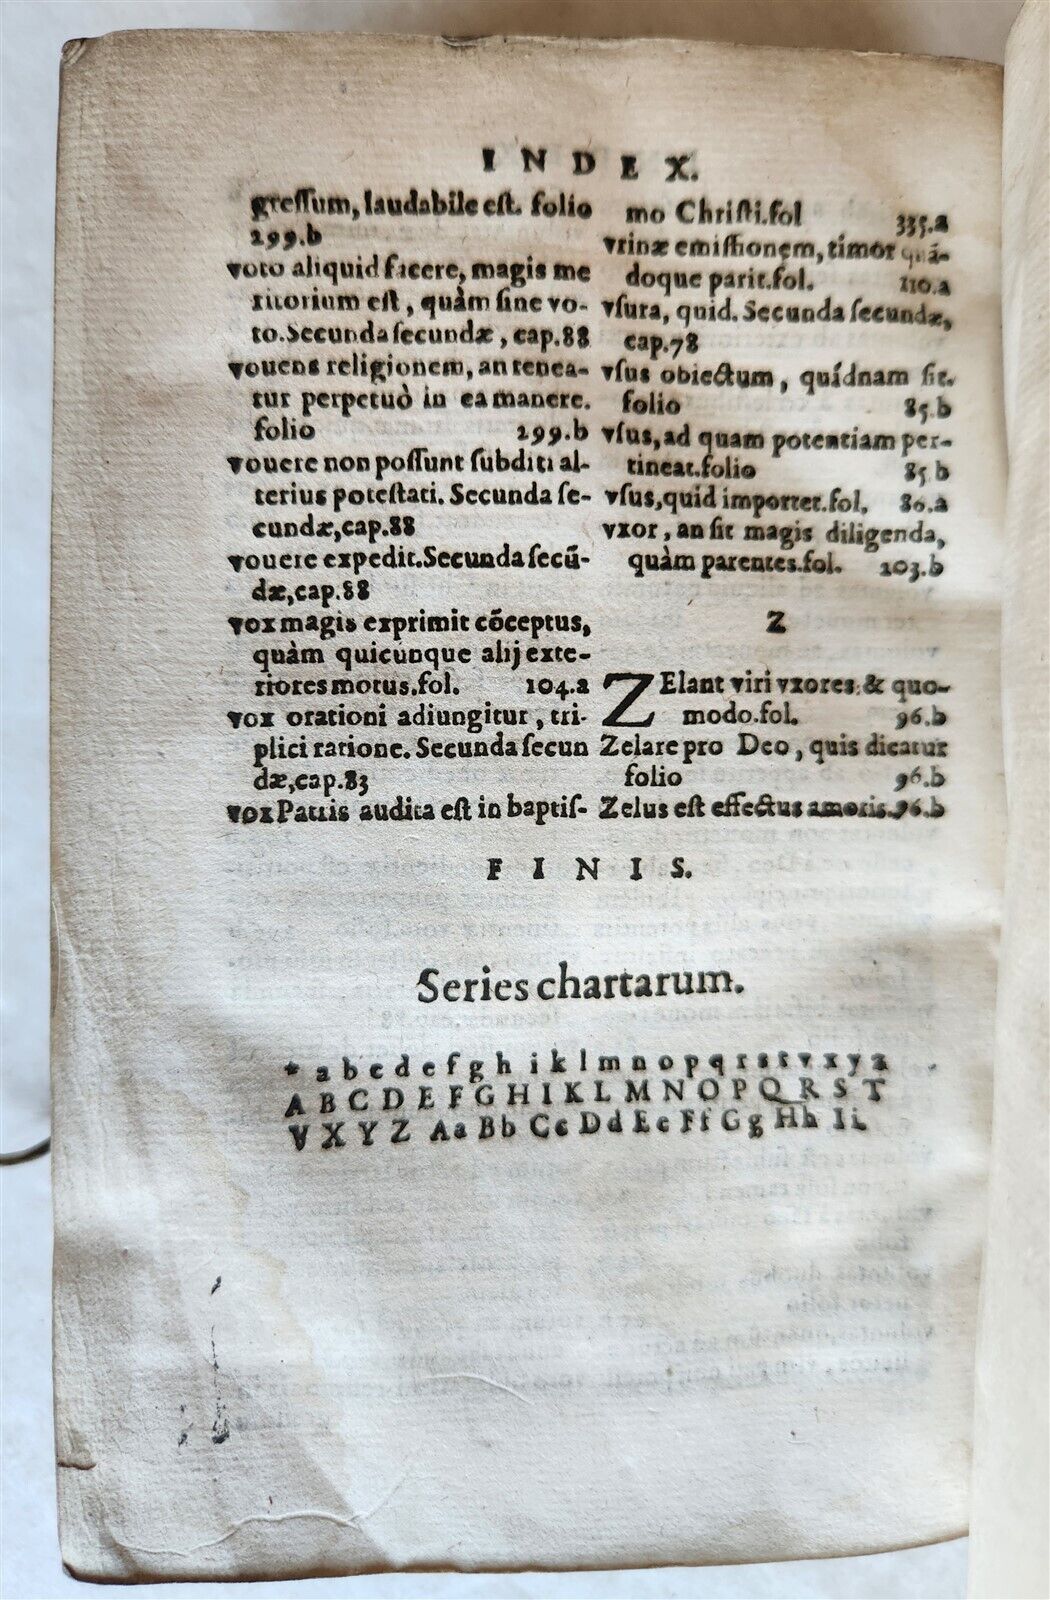 INDEX.
gressum, laudabile est. folio
299.b
voto aliquid facere, magis me
ritorium est, quàm sine vo-
to. Secunda secundæ, cap.88
vouens religionem, an tenea-
tur perpetuò in ea manere.
folio 299.b
vouere non possunt subditi al-
terius potestati. Secunda se-
cundæ, cap.88
vouere expedit. Secunda secū-
dæ, cap.88
vox magis exprimit cōceptus,
quàm quicunque alij exte-
riores motus. fol. 104.a
vox orationi adiungitur, tri-
plici ratione. Secunda secun
dæ, cap.83
vox Patris audita est in baptis-
mo Christi. fol 335.a
vrinæ emissionem, timor quā-
doque parit. fol. 110.a
vsura, quid. Secunda secundæ,
cap.78
vsus obiectum, quídnam sit.
folio 85.b
vsus, ad quam potentiam per-
tineat. folio 85.b
vsus, quid importet. fol. 86.a
vxor, an sit magis diligenda,
quàm parentes. fol. 103.b
Z
ZElant viri vxores: & quo-
modo. fol. 96.b
Zelare pro Deo, quis dicatur
folio 96.b
Zelus est effectus amoris. 96.b
FINIS.
Series chartarum.
* a b c d e f g h i k l m n o p q r s t v x y z
A B C D E F G H I K L M N O P Q R S T
V X Y Z Aa Bb Cc Dd Ee Ff Gg Hh Ii.